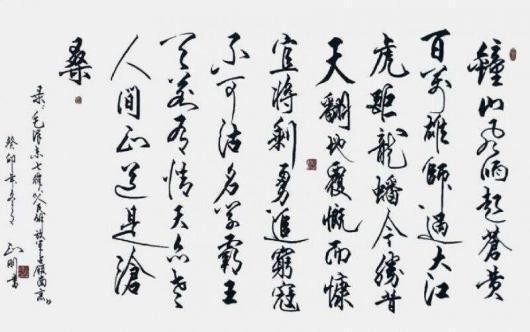 鐘山風雨起蒼黃
百萬雄師過大江
虎距龍蟠今勝昔
天翻地覆慨而慷
宜將剩勇追窮寇
不可沽名學霸王
天若有情天亦老
人間正道是滄
桑
录毛泽东七律《人民解放军占领南京》
癸卯年
正明書